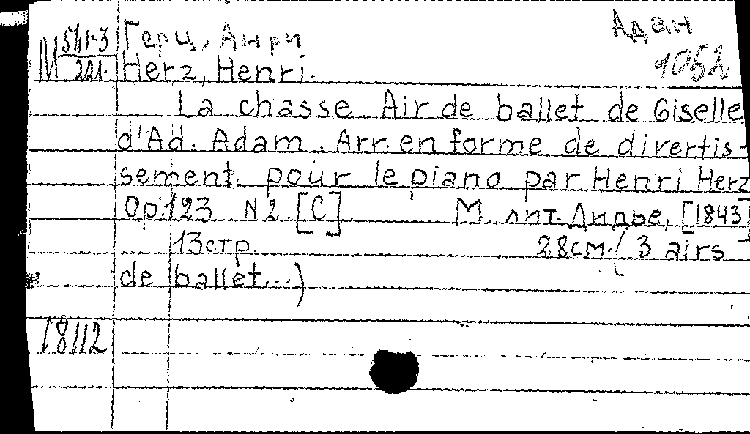 Адан
1052
М 541-3
221.
Герц, Анри
Herz, Henri.
La chasse Air de ballet de Giselle
d'Ad. Adam. Arr. en forme de divertis-
sement. pour le piano par Henri Herz
Op 123 N 2 [C] М. лит. Дидье, [1843]
13стр. 28см. (3 airs
de ballet...)
18112